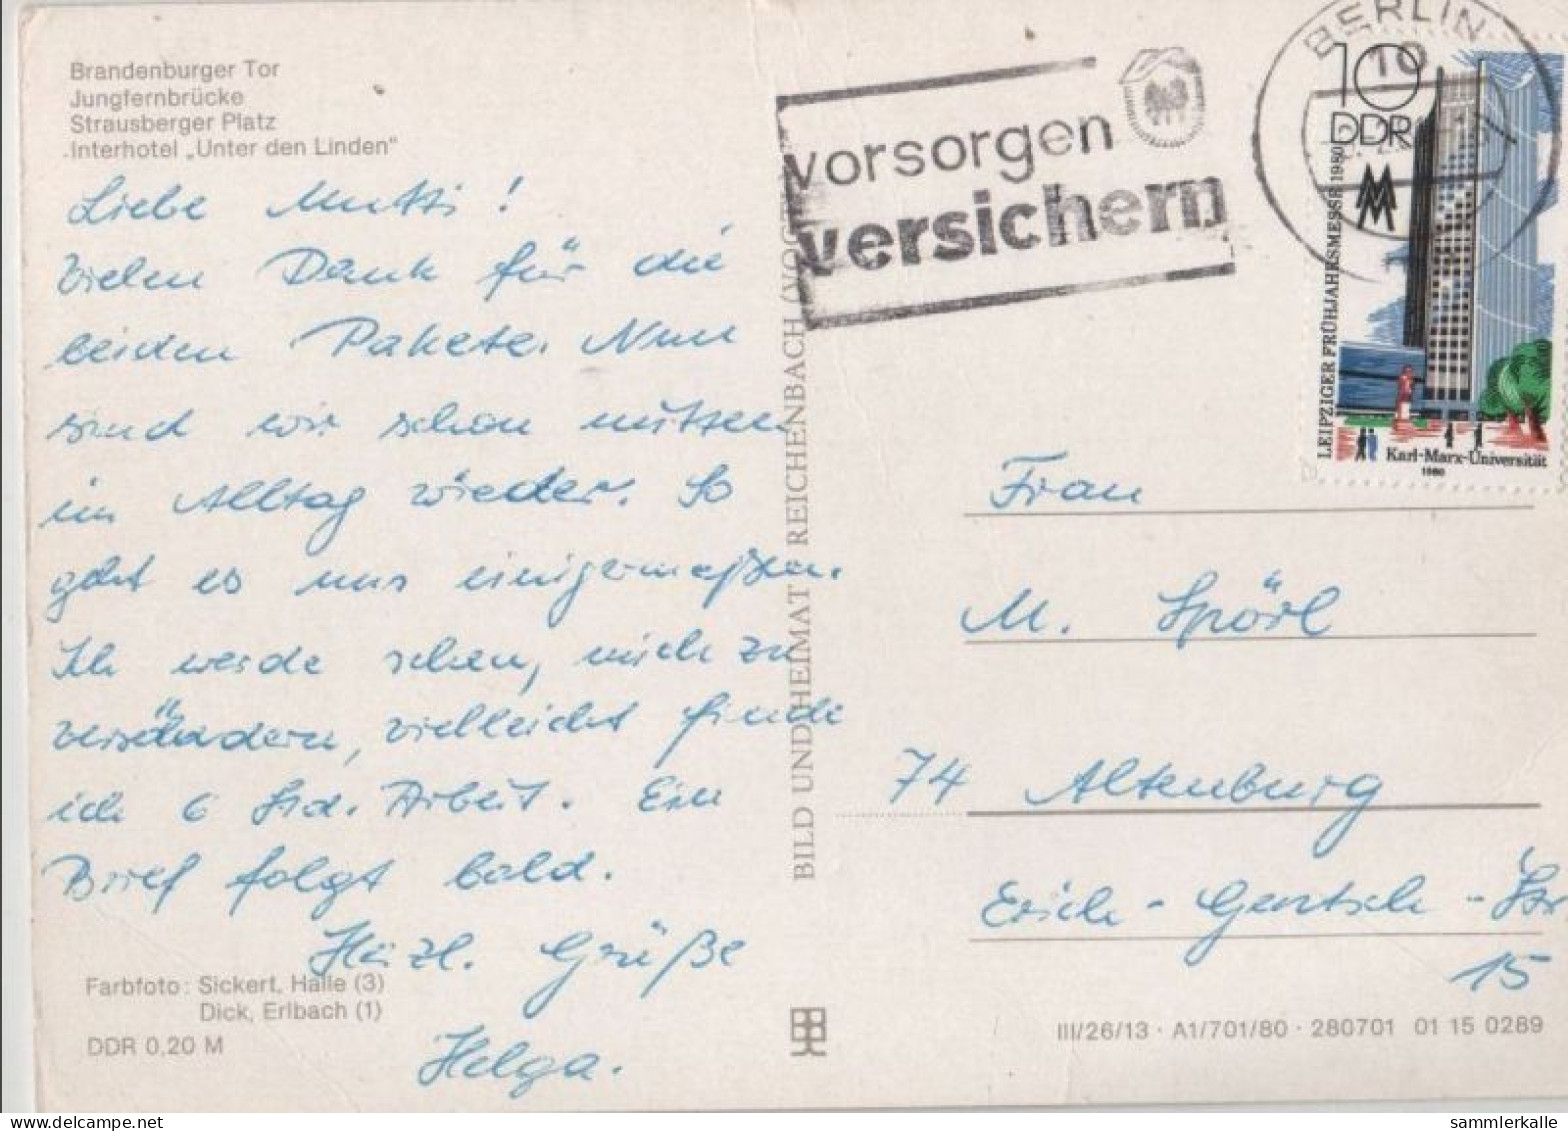 Brandenburger Tor
Jungfernbrücke
Strausberger Platz
Interhotel „Unter den Linden"
Liebe Mutti!
Vielen Dank für die
beiden Pakete. Nun
sind wir schon mitten
im Alltag wieder. So
geht es uns einigermaßen.
Ich werde sehen, mich zu
verändern, vielleicht finde
ich 6 Std. Arbeit. Ein
Brief folgt bald.
Herzl. Grüße
Helga.
Farbfoto: Sickert, Halle (3)
Dick, Erlbach (1)
DDR 0,20 M
BILD UND HEIMAT REICHENBACH (VOGT
vorsorgen
versichern
BERLIN
10
10
DDR
MM
LEIPZIGER FRÜHJAHRSMESSE 1980
Karl-Marx-Universität
1980
Frau
M. Spörl
74 Altenburg
Erich-Gentsch-Str
15
III/26/13 · A1/701/80 · 280701 01 15 0289
sammlerkalle